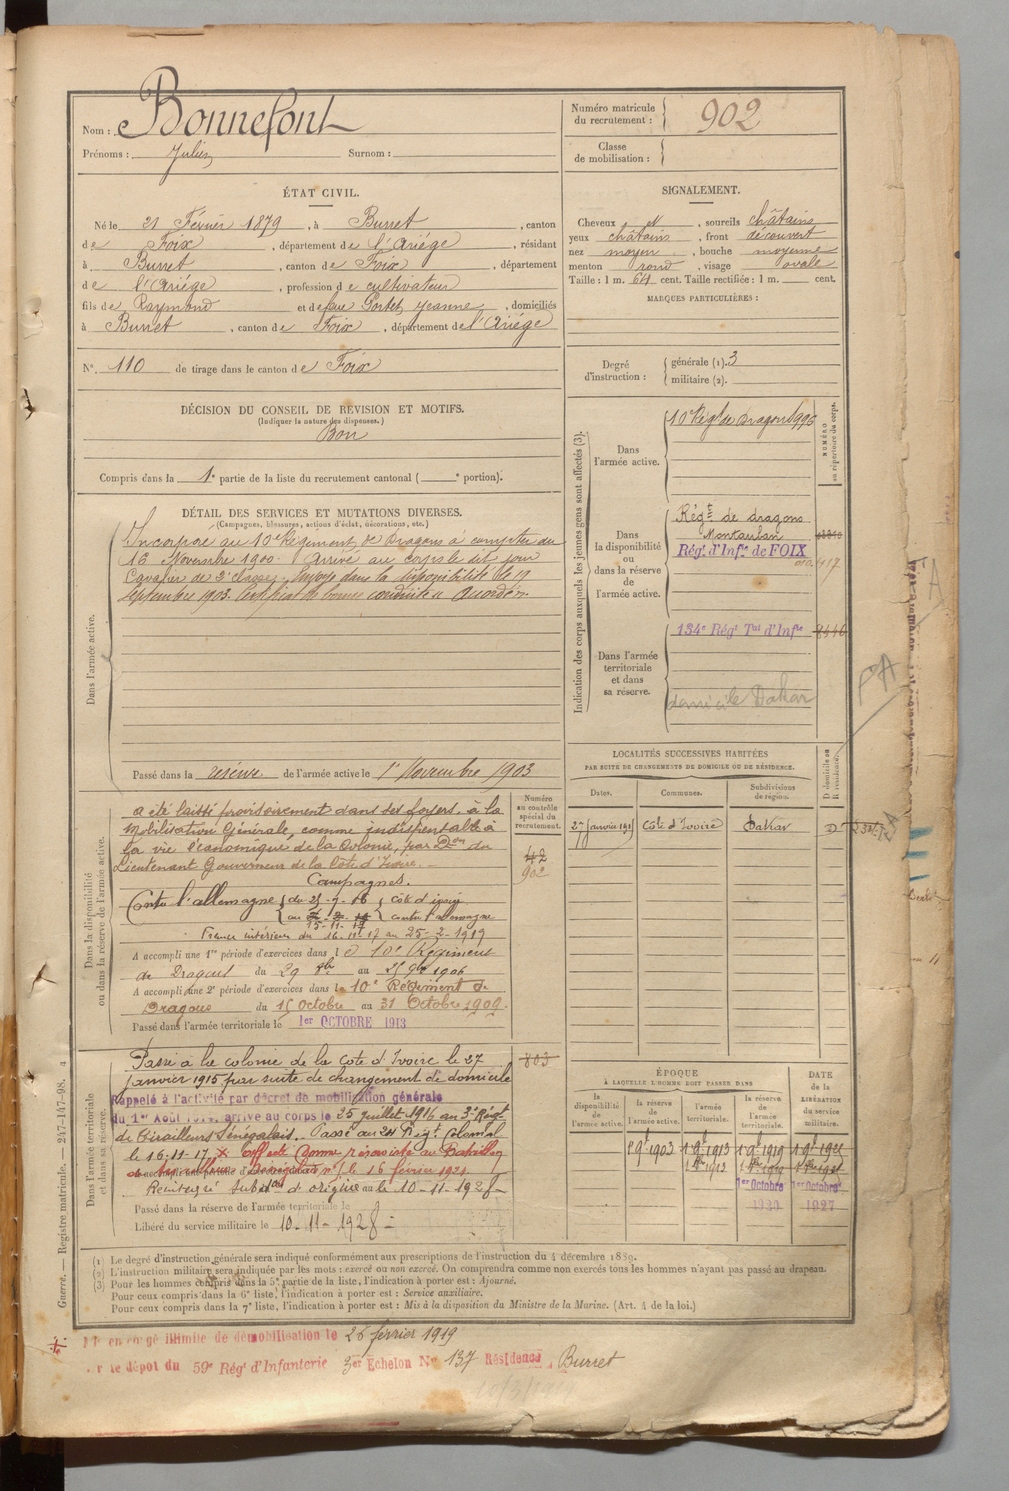 Nom : Bonnefont
Prénoms : Julien Surnom :
Numéro matricule du recrutement : 902
Classe de mobilisation :
ÉTAT CIVIL.
Né le 21 Février 1879, à Burret, canton
de Foix, département de l'Ariége, résidant
à Burret, canton de Foix, département
de l'Ariége, profession de cultivateur
fils de Raymond et de feue Portet Jeanne, domiciliés
à Burret, canton de Foix, département de l'Ariége
N° 110 de tirage dans le canton de Foix
SIGNALEMENT.
Cheveux et, sourcils châtains
yeux châtains, front découvert
nez moyen, bouche moyenne
menton rond, visage ovale
Taille : 1 m. 64 cent. Taille rectifiée : 1 m. cent.
MARQUES PARTICULIÈRES :
Degré d'instruction : générale (1). 3
militaire (2).
DÉCISION DU CONSEIL DE RÉVISION ET MOTIFS.
(Indiquer la nature des dispenses.)
Bon
Compris dans la 1e partie de la liste du recrutement cantonal ( e portion).
DÉTAIL DES SERVICES ET MUTATIONS DIVERSES.
(Campagnes, blessures, actions d'éclat, décorations, etc.)
Dans l'armée active.
Incorporé au 10e Régiment de Dragons à compter du
16 Novembre 1900. Arrivé au corps le dit jour
Cavalier de 2e classe. Envoyé dans la disponibilité le 19
Septembre 1903. Certificat de bonne conduite accordé.
Passé dans la réserve de l'armée active le 1er Novembre 1903
Indication des corps auxquels les jeunes gens sont affectés (3).
NUMÉRO au répertoire du corps.
Dans l'armée active.
10e Régt de Dragons 1996
Dans la disponibilité ou dans la réserve de l'armée active.
Régt de dragons
Montauban
Rég. d'Infie de FOIX
Dans l'armée territoriale et dans sa réserve.
134e Régt Tal d'Infie
domicile Dakar
PA
Dans la disponibilité ou dans la réserve de l'armée active.
Numéro au contrôle spécial du recrutement.
42
902
a été laissé provisoirement dans ses foyers, à la
Mobilisation Générale, comme indispensable à
la vie économique de la Colonie, par Don du
Lieutenant Gouverneur de la Côte d'Ivoire.
Campagnes.
Contre l'allemagne
15-11-17 contre l'allemagne
France intérieur du 16-11-17 au 25-2-1919
A accompli une 1re période d'exercices dans le 10e Régiment
de Dragons du 29 8bre au 25 9bre 1906
A accompli une 2e période d'exercices dans le 10e Régiment de
Dragons du 15 Octobre au 31 Octobre 1909.
Passé dans l'armée territoriale le 1er OCTOBRE 1913
LOCALITÉS SUCCESSIVES HABITÉES
PAR SUITE DE CHANGEMENTS DE DOMICILE OU DE RÉSIDENCE.
Dates. Communes. Subdivisions de région. D domicile ou R résidence.
27 janvier 1915 Côte d'Ivoire Dakar D
Dans l'armée territoriale et dans sa réserve.
803
Passé à la colonie de la Côte d'Ivoire le 27
janvier 1915 par suite de changement de domicile
Rappelé à l'activité par décret de mobilisation générale
du 1er Août 1914, arrivé au corps le 25 juillet 1916 au 3e Régt
de Tirailleurs Sénégalais. Passé au 24 Régt Colonial
le 16-11-17. X Affecté comme réserviste au Bataillon
de tirailleurs Sénégalais n° 1 le 16 février 1921
Réintegré Subdon d'origine le 10-11-1928
Passé dans la réserve de l'armée territoriale le
Libéré du service militaire le 10-11-1928
ÉPOQUE
À LAQUELLE L'HOMME DOIT PASSER DANS
la disponibilité de l'armée active. la réserve de l'armée active. l'armée territoriale. la réserve de l'armée territoriale. DATE de la LIBÉRATION du service militaire.
1er Octobre 1920 1er Octobre 1927
(1) Le degré d'instruction générale sera indiqué conformément aux prescriptions de l'instruction du 4 décembre 1889.
(2) L'instruction militaire sera indiquée par les mots : exercé ou non exercé. On comprendra comme non exercés tous les hommes n'ayant pas passé au drapeau.
(3) Pour les hommes compris dans la 5e partie de la liste, l'indication à porter est : Ajourné.
Pour ceux compris dans la 6e liste, l'indication à porter est : Service auxiliaire.
Pour ceux compris dans la 7e liste, l'indication à porter est : Mis à la disposition du Ministre de la Marine. (Art. 4 de la loi.)
Guerre. — Registre matricule. — 247-147-98.
en congé illimité de démobilisation le 26 février 1919
le dépôt du 59e Régt d'Infanterie 3er Echelon No 137 Résidence Burret